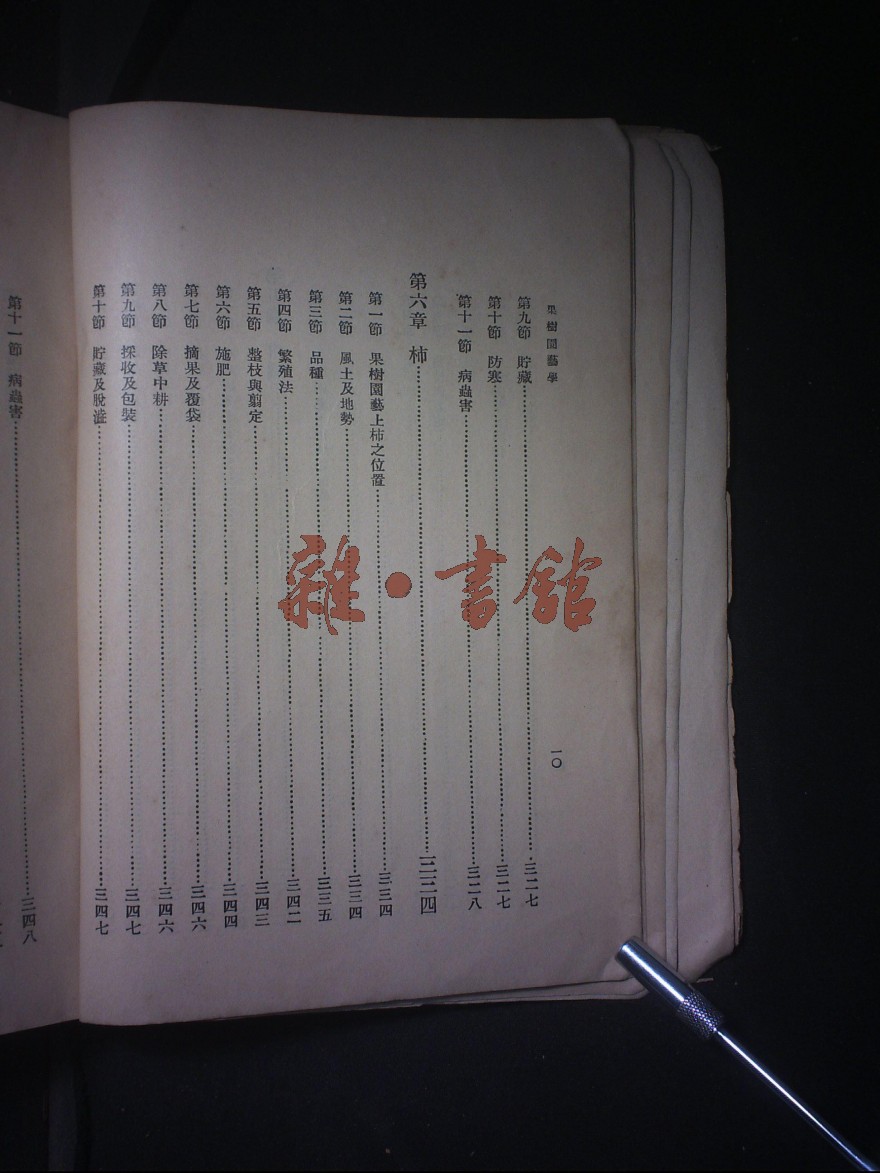 果樹園藝學
一〇
第九節 貯藏 三二七
第十節 防寒 三二七
第十一節 病蟲害 三二八
第六章 柿 三三四
第一節 果樹園藝上柿之位置 三三四
第二節 風土及地勢 三三四
第三節 品種 三三五
第四節 繁殖法 三四二
第五節 整枝與剪定 三四三
第六節 施肥 三四四
第七節 摘果及覆袋 三四六
第八節 除草中耕 三四六
第九節 採收及包裝 三四七
第十節 貯藏及脫澁 三四七
第十一節 病蟲害 三四八
雜·書館